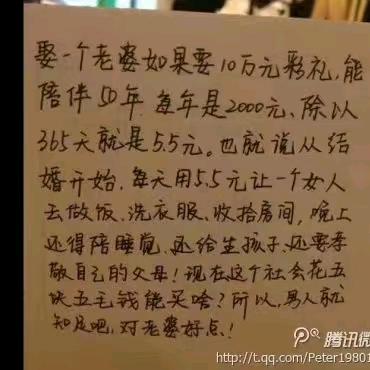 娶一个老婆如果要10万元彩礼,能
陪伴50年.每年是2000元、除以
365天就是5.5元。也就说从结
婚开始.每天用5.5元让一个女人
去做饭、洗衣服、收拾房间,晚上
还得陪睡觉、还给生孩子、还要孝
敬自己的父母!现在这个社会花五
块五毛钱能买啥?所以,男人就
知足吧,对老婆好点!
腾讯微
http://t.qq.com/Peter19801